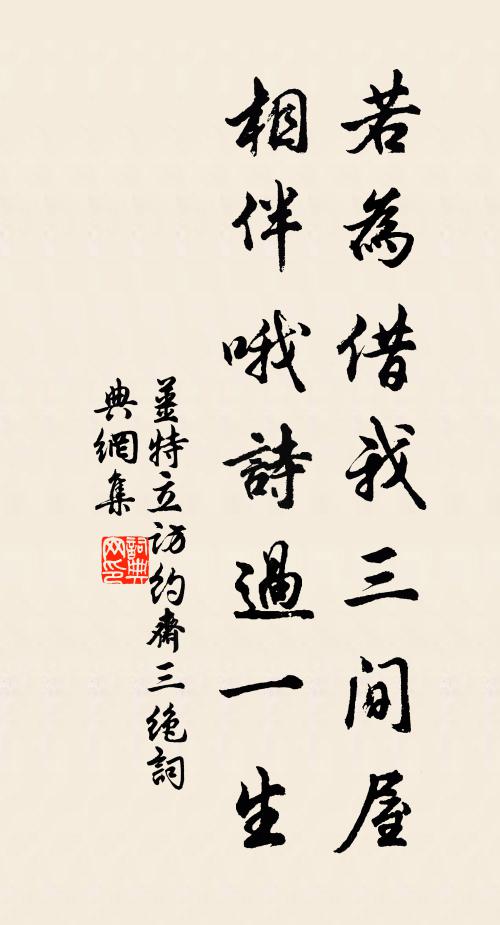 若為借我三間屋
相伴哦詩過一生
姜特立訪約齋三絶詞
典網集
詞典
网印